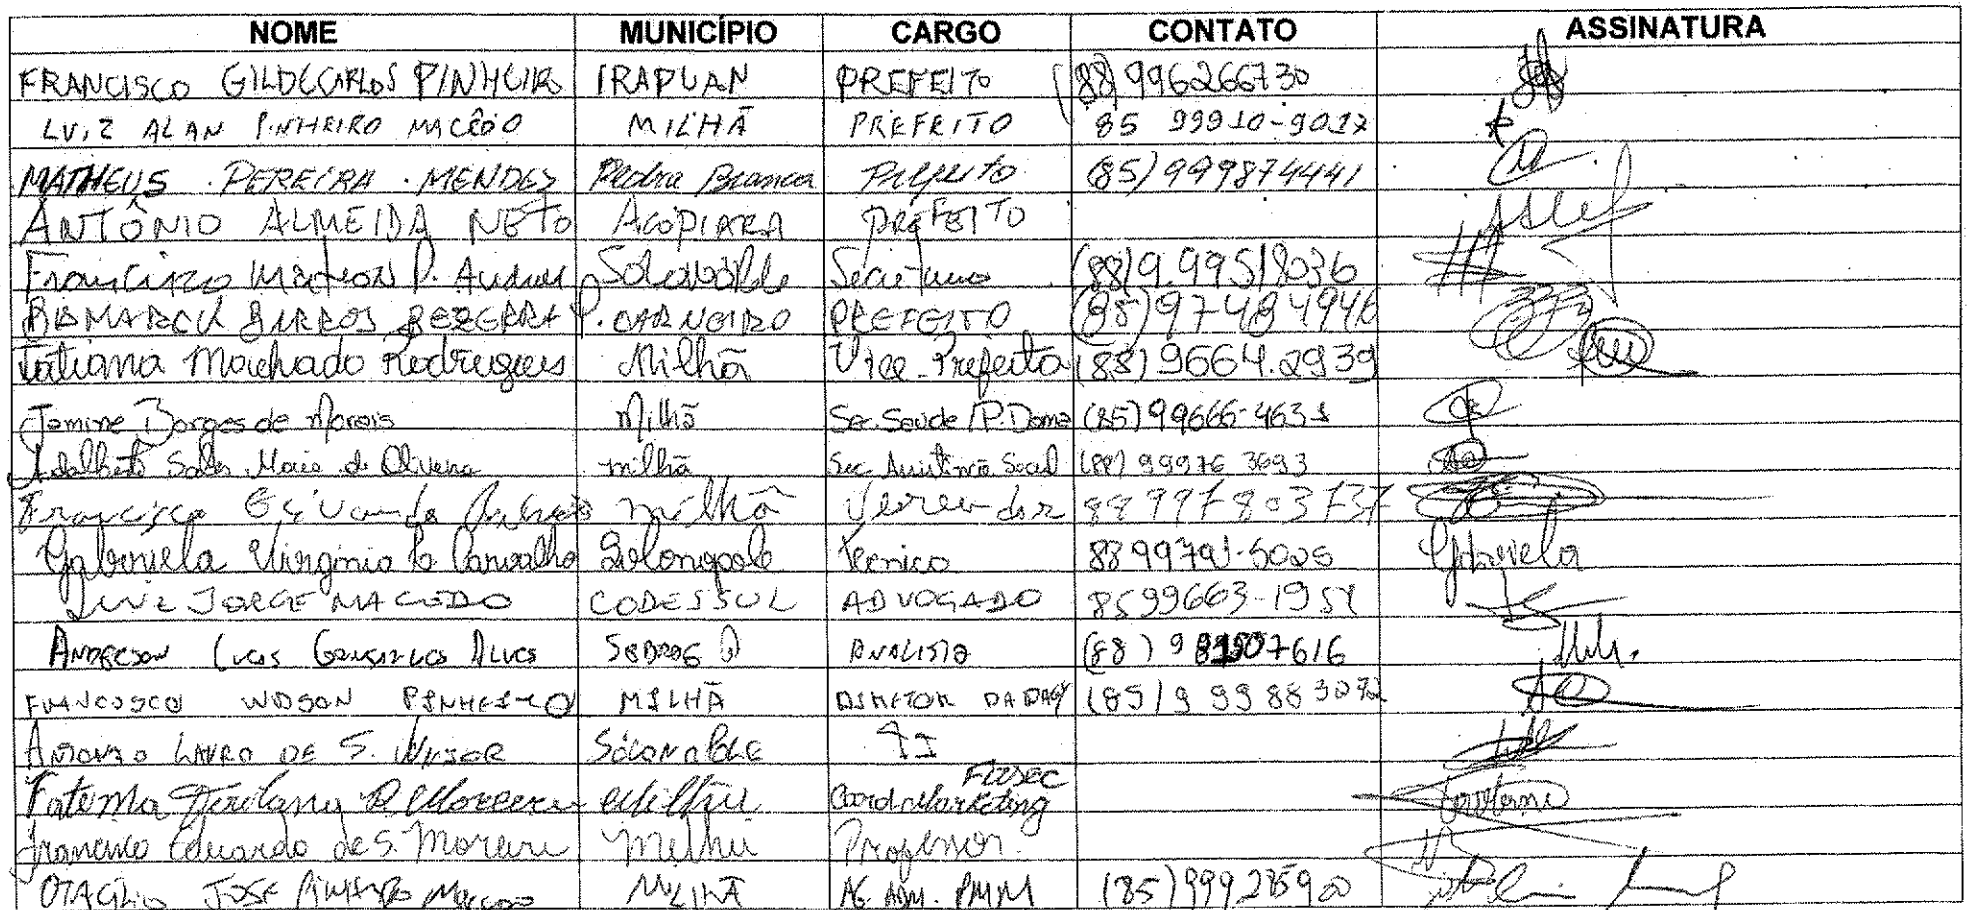 NOME MUNICÍPIO CARGO CONTATO ASSINATURA
FRANCISCO GILDECARLOS PINHEIRO IRAPUAN PREFEITO (88) 996266730
LUIZ ALAN PINHEIRO MACÊDO MILHÃ PREFEITO 85 99910-9017
MATHEUS PEREIRA MENDES Pedra Branca Prefeito (85) 999874441
ANTÔNIO ALMEIDA NETO ACOPIARA PREFEITO
Francisco P. Solonópole Secretário (88) 9.99518036
BISMARCK BARROS BEZERRA P. CARNEIRO PREFEITO (85) 97484946
Tatiana Machado Rodrigues Milhã Vice-Prefeita (88) 9664.2939
Jamine Borges de Morais Milhã Sec. Saúde /P. Dama (85) 99666-4631
Adalberto Sales Maia de Oliveira milhã Sec. Assistência Social (88) 99976 3693
Francisco milhã Vereador 88997803737
Gabriela Virginia Carvalho Solonopole Tecnico Gabriela
LUIZ JORGE MACEDO CODESSUL ADVOGADO 8599663-195
ANDERSON LUCAS GONÇALVES ALVES SEBRAE ANALISTA (88) 9 07616
FRANCISCO WDSON PINHEIRO MILHÃ DIRETOR (85) 9 9988
ANTONIO LAURO DE S. SOLONOPOLE
Fatima Moreira Milhã Coord. Marketing
Francisco Eduardo de S. Moreira Milhã Professor.
OTACÍLIO JOSE PINHEIRO MACEDO MILHÃ AG. ADM. PMM (85) 99927590